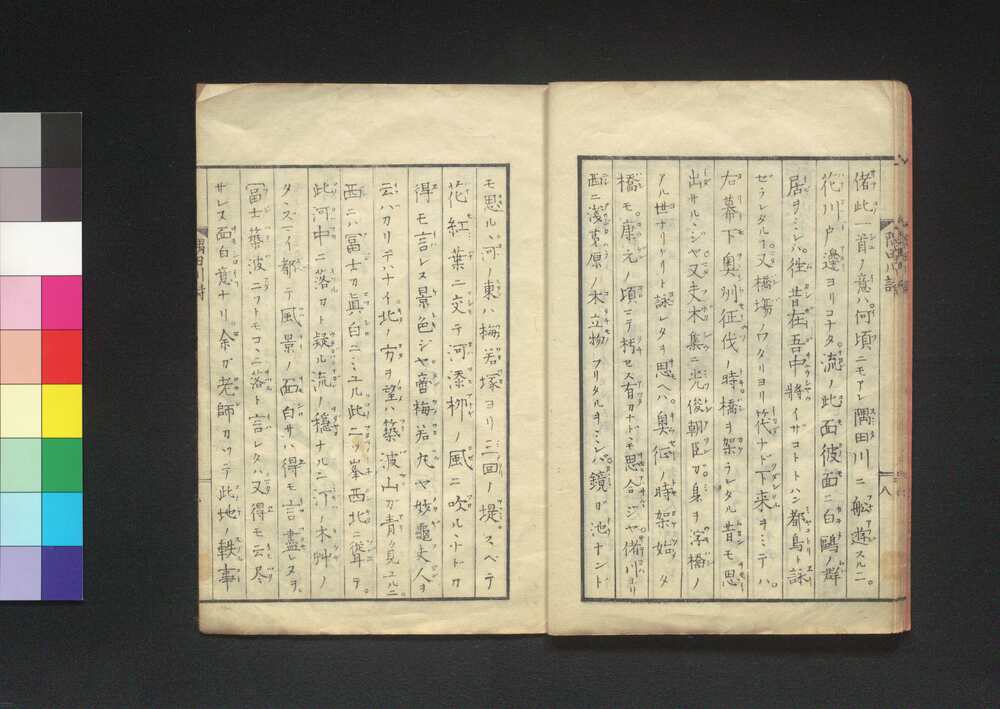 偖此一首ノ意ハ何頃ニモアレ隅田川ニ舩遊スルニ。
花川戸邊ヨリコナタ流ノ此面彼面ニ白鷗ノ群
居ヲミレハ往昔在吾中將イサコトトハン都鳥ト詠
ゼラレタル又橋場ノワタリヨリ筏ナド下来ヲミテハ。
右幕下奥州征伐ノ時橋ヲ架ラレタル昔モ思
出サルヽジヤ又夫木集ニ光俊朝臣ガ身ヲ浮橋ノ
アル世ナリケリト詠レタヲ思ヘハ奥征ノ時架始タ
橋モ康元ノ頃ニテ朽セス有カナドヽモ思合ジヤ偖川ヨリ
西ニ浅茅原ノ木立物フリタルヲミレバ鏡ガ池ナンド
モ思ルヽ河ノ東ハ梅若塚ヨリ三回ノ堤スベテ
花紅葉ニ交テ河添柳ノ風ニ吹ルヽトドカ
得モ言レス景色ジヤ
梅若丸ヤ妙龜夫人ヲ
云バカリテハナイ北ノ方ヲ望ハ築波山カ青々見ユルニ。
西ニハ冨士カ眞白ニミユル此二ツ峯西北ニ聳テ。
此河中ニ落カト疑ル流ノ穩ナルニ汀ノ木艸ノ
タヽズマイ都テ風景ノ面白サハ得モ言盡レヌヲ。
冨士築波ニツトモコヽニ落ト言レタハ又得モ云尽
サレヌ面白意ナリ。余ガ老師カツテ此地ノ軼事
隅田川詩
八